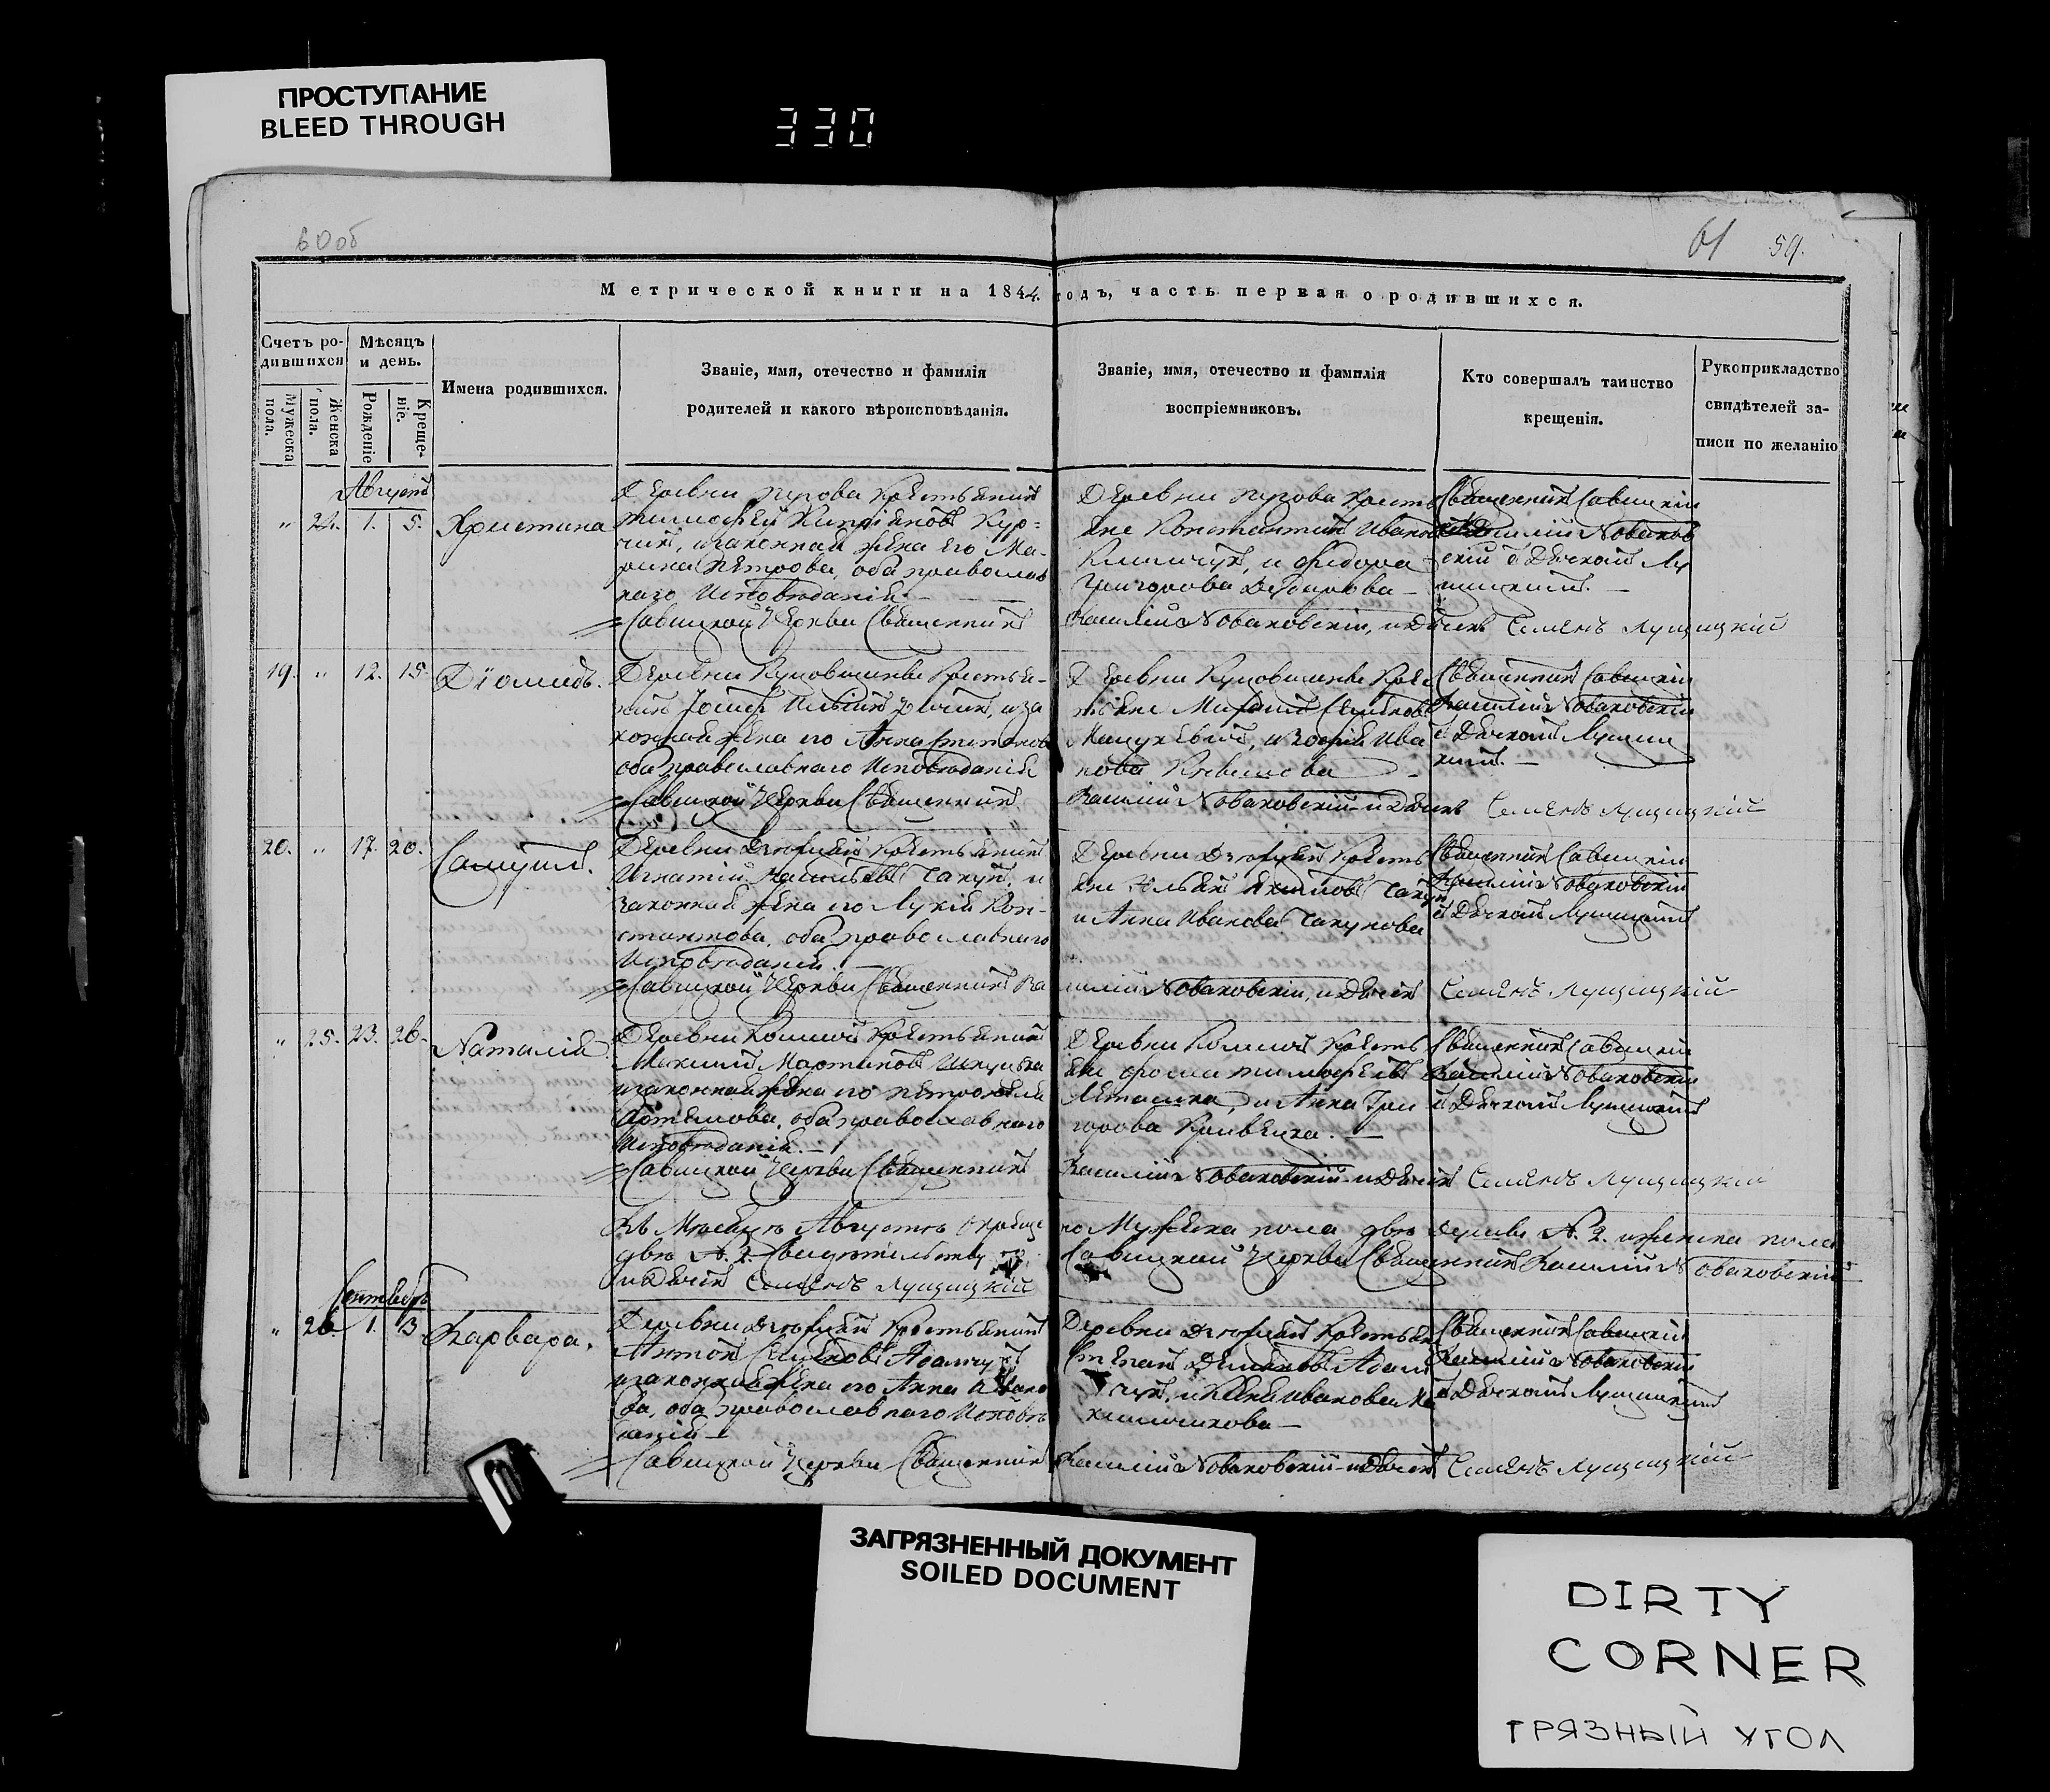 ПРОСТУПАНИЕ
BLEED THROUGH
330
60 об
61 59.
Метрической книги на 1844. годъ, часть первая о родившихся.
Счетъ родившихся
Мѣсяцъ и день.
Мужеска пола.
Женска пола.
Рожденіе
Крещеніе.
Имена родившихся.
Званіе, имя, отечество и фамилія
родителей и какого вѣроисповѣданія.
Званіе, имя, отечество и фамилія
воспріемниковъ.
Кто совершалъ таинство
крещенія.
Рукоприкладство
свидѣтелей за-
писи по желанію
Августъ
" 24. 1. 5. Христина
Деревни крестьянинъ
Тимофей Кур=
чик, и законная жена его Ма-
рина Петрова, оба православ
наго Исповѣданія
Деревни кресть
яне Константинъ Иванов
Климчук, и Федора
Григорова
Священникъ Савицкій
Василій Новаков
скій с Дьячкомъ Лу
щицкимъ.
Савицкой Церкви Священникъ Василій Новаковскій, и Дьячекъ Семенъ Лущицкій
19. " 12. 15. Діомидъ.
Деревни крестья-
нинъ и за
конная жена его Анна
оба православнаго Исповѣданія
Деревни кре
стьяне
и Зофія Ива
нова
Священникъ Савицкій
Василій Новаковскій
с Дьячкомъ Лущиц
кимъ.
Савицкой Церкви Священникъ Василій Новаковскій и Дьячекъ Семенъ Лущицкій
20. " 17. 20. Самуил.
Деревни крестьянинъ
Игнатій и
законная жена его Лукія Кон-
стантова, оба православнаго
Исповѣданія.
Деревни кресть
яне
и Анна Иванова
Священникъ Савицкій
Василій Новаковскій
с Дьячкомъ Лущицкимъ
Савицкой Церкви Священникъ Ва силій Новаковскій, и Дьячекъ Семенъ Лущицкій
" 25. 23. 26. Наталія
Деревни крестьянинъ
Максимъ Мартинов
и законная жена его Петронеля
Артемова, оба православнаго
Исповѣданія.
Деревни кресть
яне Фома Тимофеев
и Анна Гри
горова
Священникъ Савицкій
Василій Новаковскій
с Дьячкомъ Лущицкимъ
Савицкой Церкви Священникъ Василій Новаковскій и Дьячекъ Семенъ Лущицкій
Въ Мѣсяцѣ Августѣ окреще но Мужеска пола двѣ души N. 2. и женска пола
двѣ N. 2. Савицкой Церкви Священникъ Василій Новаковскій
и Дьячекъ Семенъ Лущицкій
Сентябрь
" 26. 1. 3. Варвара.
Деревни крестьянинъ
Антон Адамчук
и законная жена его Анна Ивано
ва, оба православнаго Исповѣ
данія
Деревни
Степан Адам
чук, и
Священникъ Савицкій
Василій Новаковскій
с Дьячкомъ Лущицкимъ
Савицкой Церкви Священникъ Василій Новаковскій и Дьячекъ Семенъ Лущицкій
ЗАГРЯЗНЕННЫЙ ДОКУМЕНТ
SOILED DOCUMENT
DIRTY
CORNER
ГРЯЗНЫЙ УГОЛ